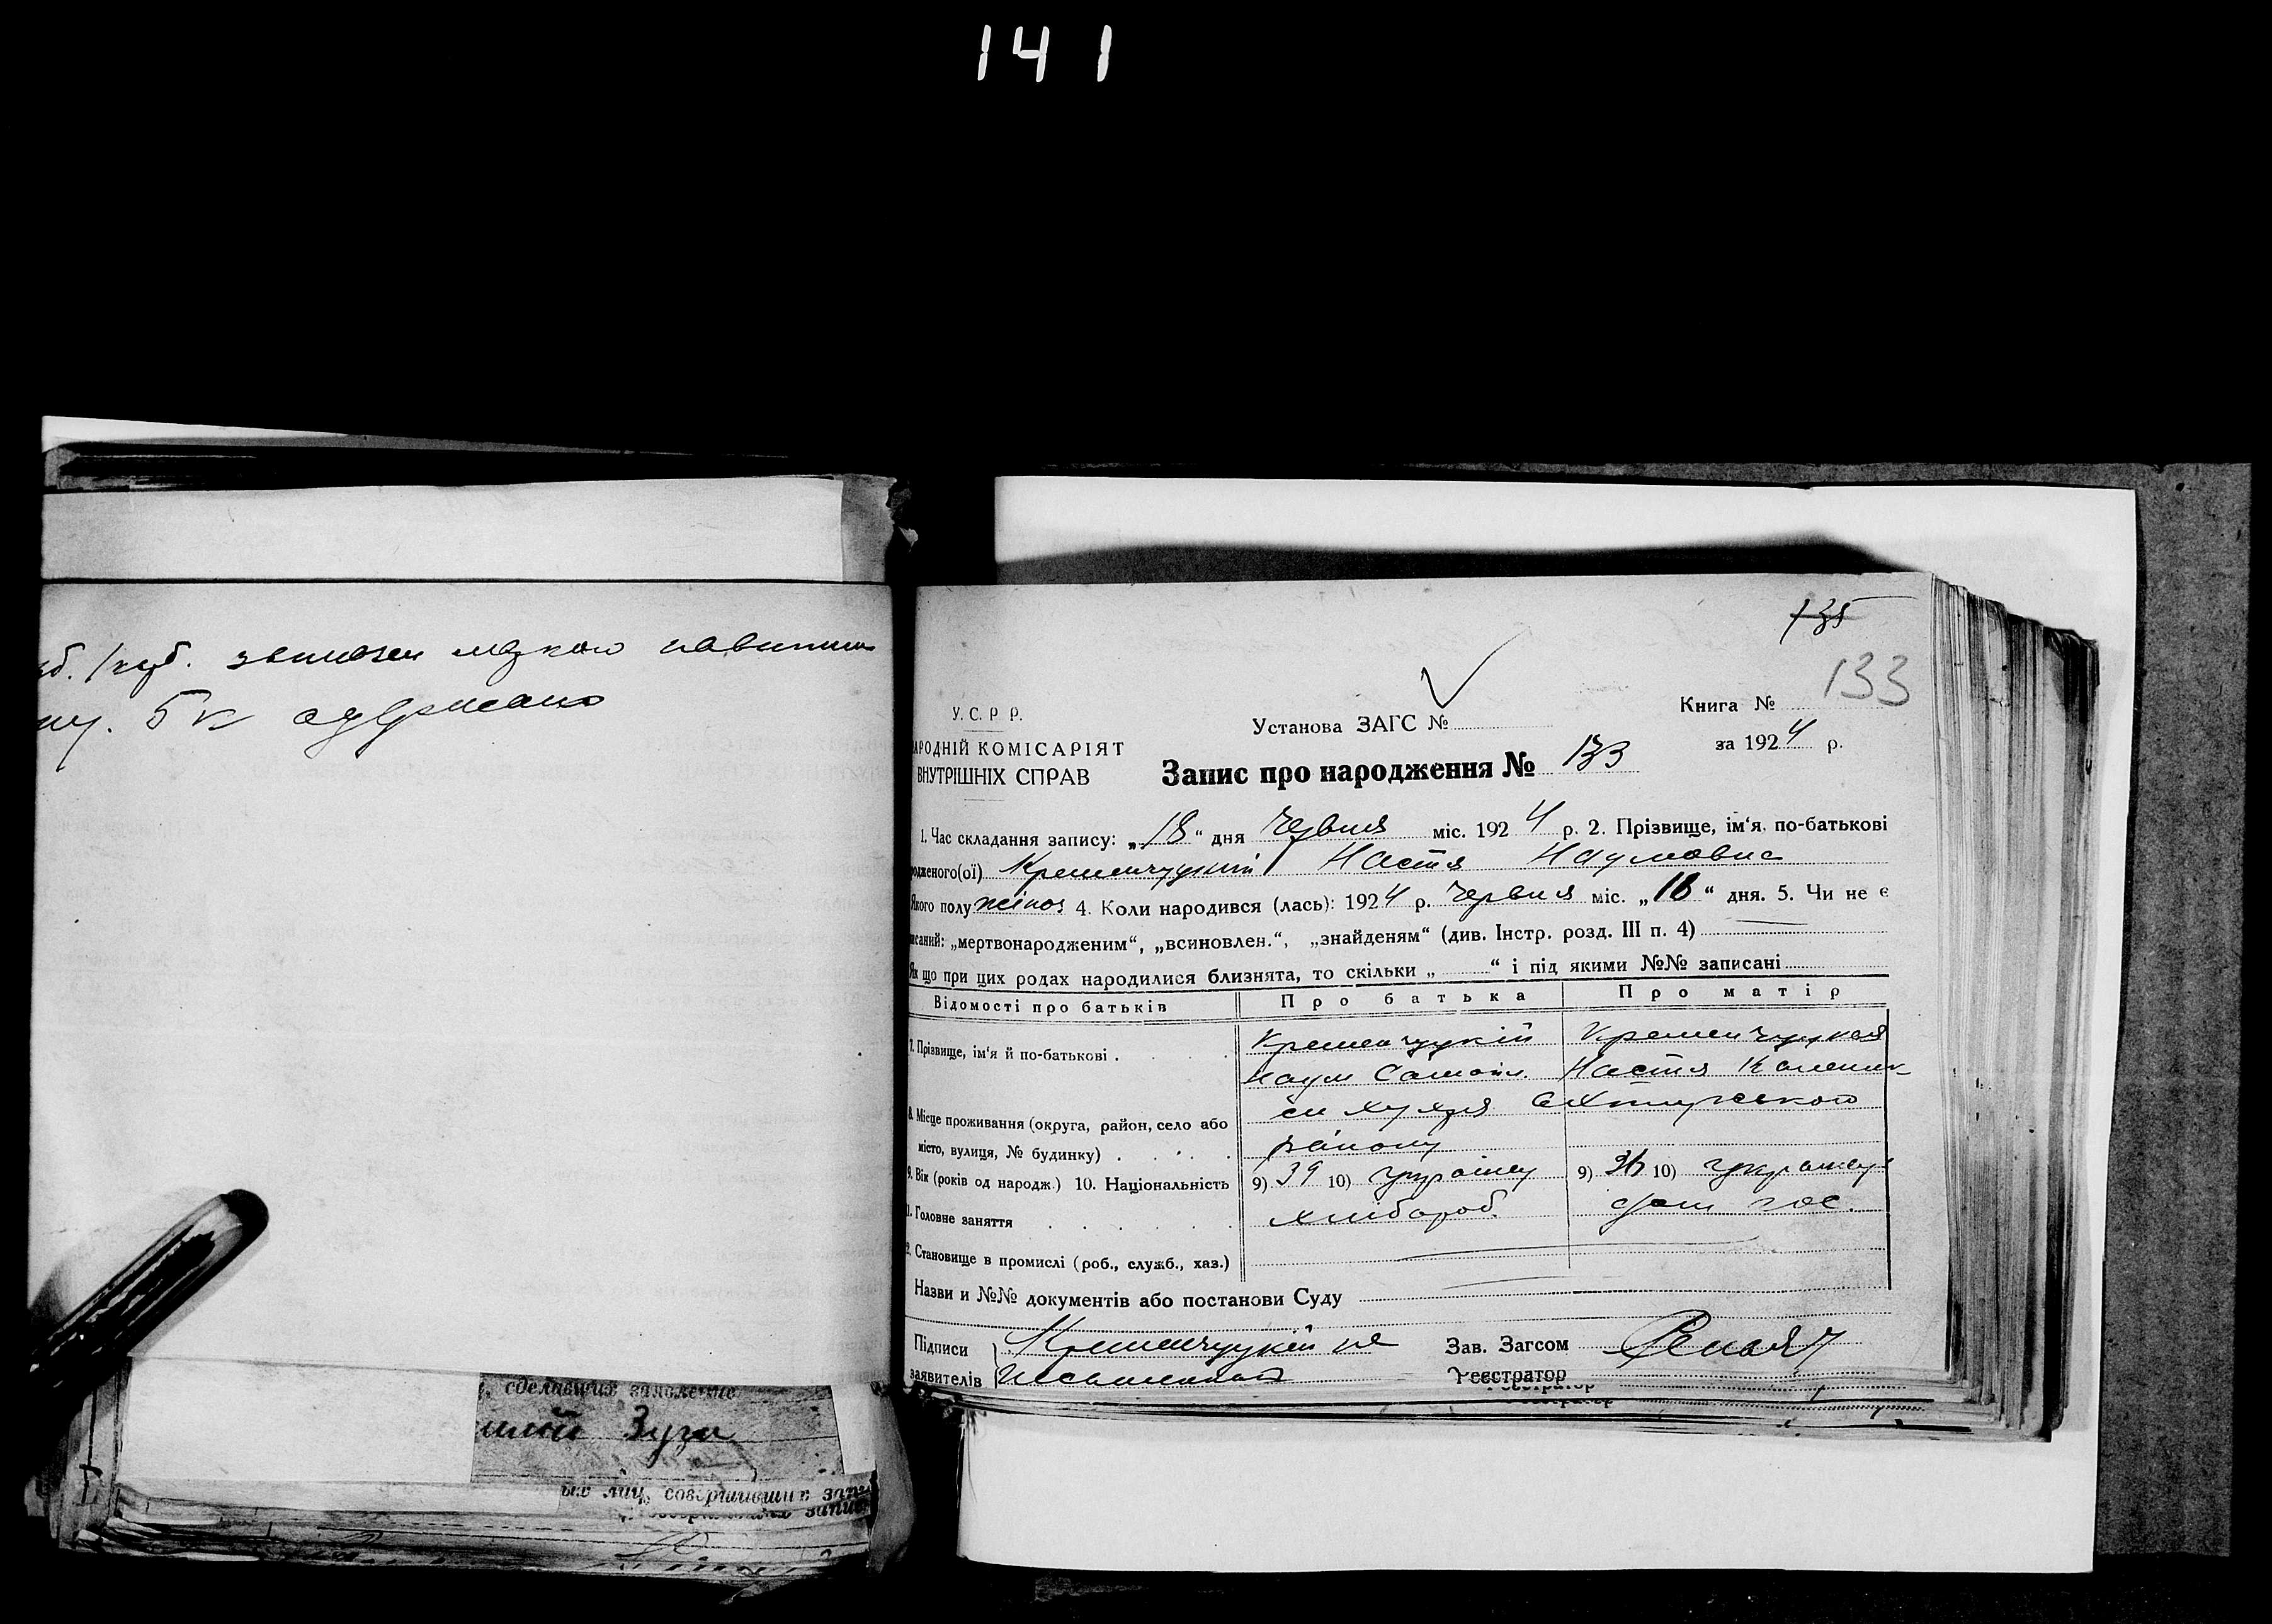 141
5 к одержано
135
133
У. С. Р. Р.
АРОДНІЙ КОМІСАРІЯТ
ВНУТРІШНІХ СПРАВ
Установа ЗАГС №
Книга №
за 1924 р.
Запис про народження № 133
1. Час складання запису: „18“ дня Червня міс. 1924 р. 2. Прізвище, ім'я, по-батькові
родженого(ої) Кременчуцкий Настя Наумовна
Якого полу жіноч 4. Коли народився (лась): 1924 р. Червня міс. „18“ дня. 5. Чи не є
писаний: „мертвонародженим“, „всиновлен.“, „знайденям“ (див. Інстр. розд. III п. 4)
Як що при цих родах народилися близнята, то скільки „ “ і під якими №№ записані
Відомості про батьків Про батька Про матір
7. Прізвище, ім'я й по-батькові . Кременчуцкій Кременчуцкая
Наум Самойл. Настя
8. Місце проживання (округа, район, село або
місто, вулиця, № будинку) . . . . . району
9. Вік (років од народж.) 10. Національність 9) 39 10) україн 9) 36 10) україн
11. Головне заняття хлібороб. дом гос.
12. Становище в промислі (роб., служб., хаз.)
Назви и №№ документів або постанови Суду
Підписи Кременчуцкій не Зав. Загсом
заявителів Реєстратор
Реєстратор
, сделавших заявление
Зуги
ых лиц, совершивших запи